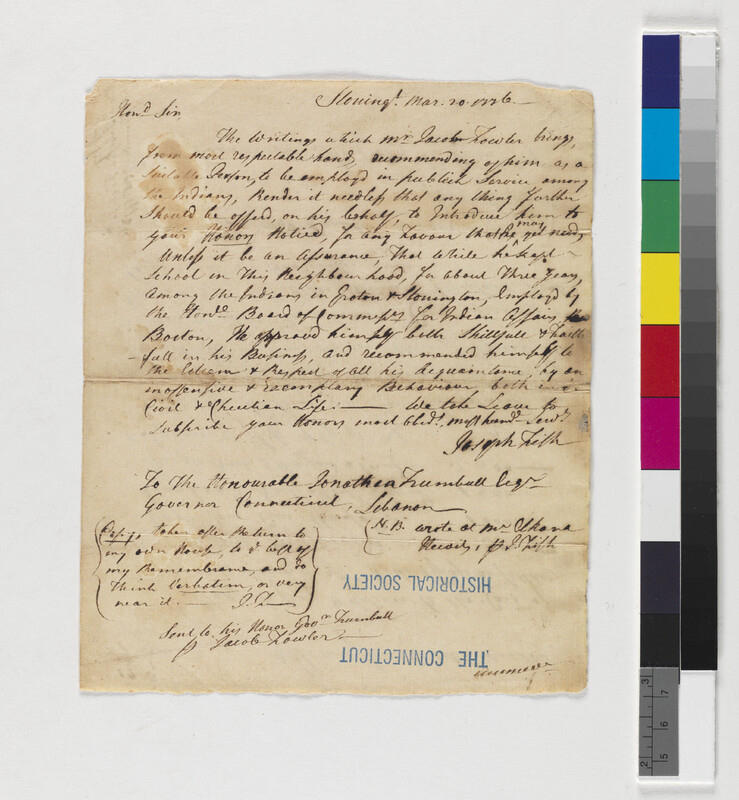 Stoningt. Mar. 20. 1776.
Hond. Sir,
The Writings which Mr Jacob Fowler brings,
from most respectable hand, recommending of him as a
Suitable Person, to be employd in publick Service among
the Indians, Render it needless that any thing further
Should be offerd, on his behalf, to Introduce him to
your Honors Notice, for any Favour that he may need;
Unless it be an assurance, that while he kept
School in this Neighbourhood, for about Three years,
among the Indians in Groton & Stonington, Employd by
the Honde. Board of Commissrs for Indian Affairs,
Boston, He approvd himself both Skillfull & Faith
-full in his Business, and recommended himself to
the Esteem & Respect of all his Acquaintance; by an
inoffensive & Exemplary Behaviour both in
Civil & Christian Life: — We take Leave to
Subscribe your Honors most Obdt. most humbl Servts
Joseph Fish
To The Honourable Jonathan Trumbull Esqr
Governor Connecticut, Lebanon
(Copy taken after Return to
my own House, to ye best of
my Remembrance, and so
Think Verbatim, or very
near it. — J. F.
(N.B. wrote at Mr Elkana
Hewits, J. Fish
Sent to his Honor Govr Trumbull
Jacob Fowler
HISTORICAL SOCIETY
THE CONNECTICUT
3
2
7
6
5